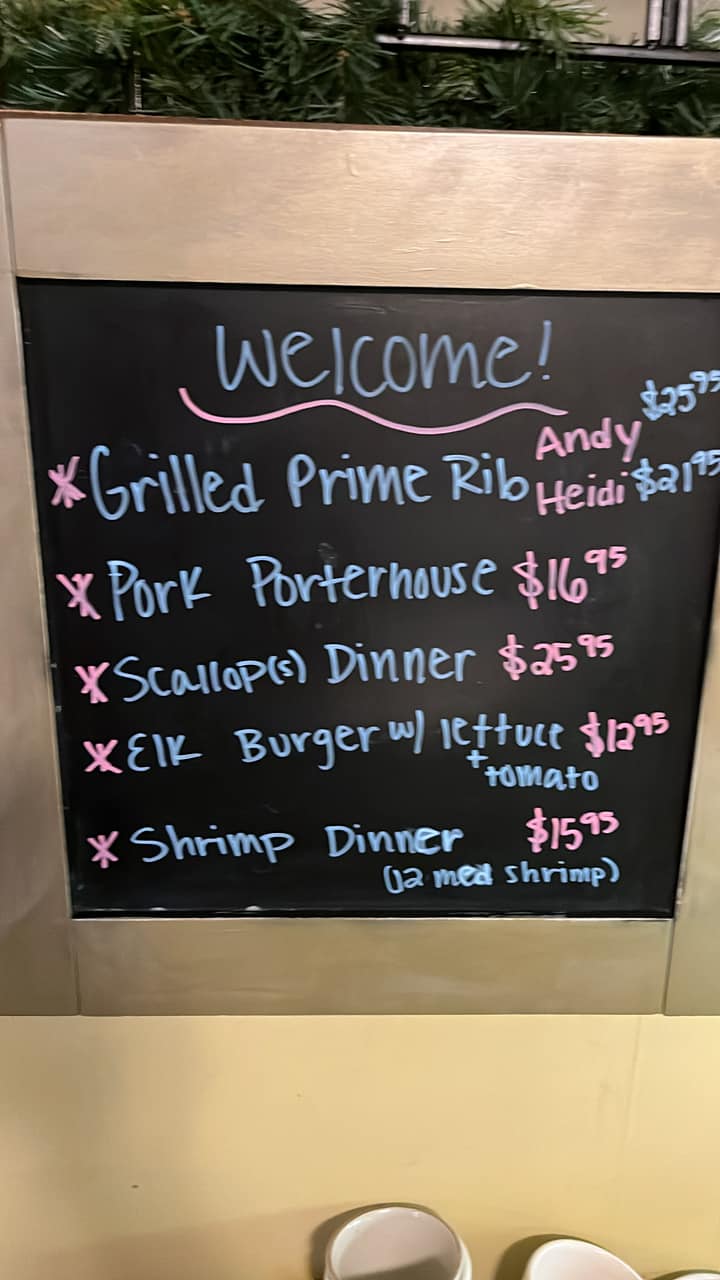 Welcome!
Andy $25.95
* Grilled Prime Rib Heidi $21.95
* Pork Porterhouse $16.95
* Scallop(s) Dinner $25.95
* Elk Burger w/ lettuce $12.95
+ tomato
* Shrimp Dinner $15.95
(12 med shrimp)